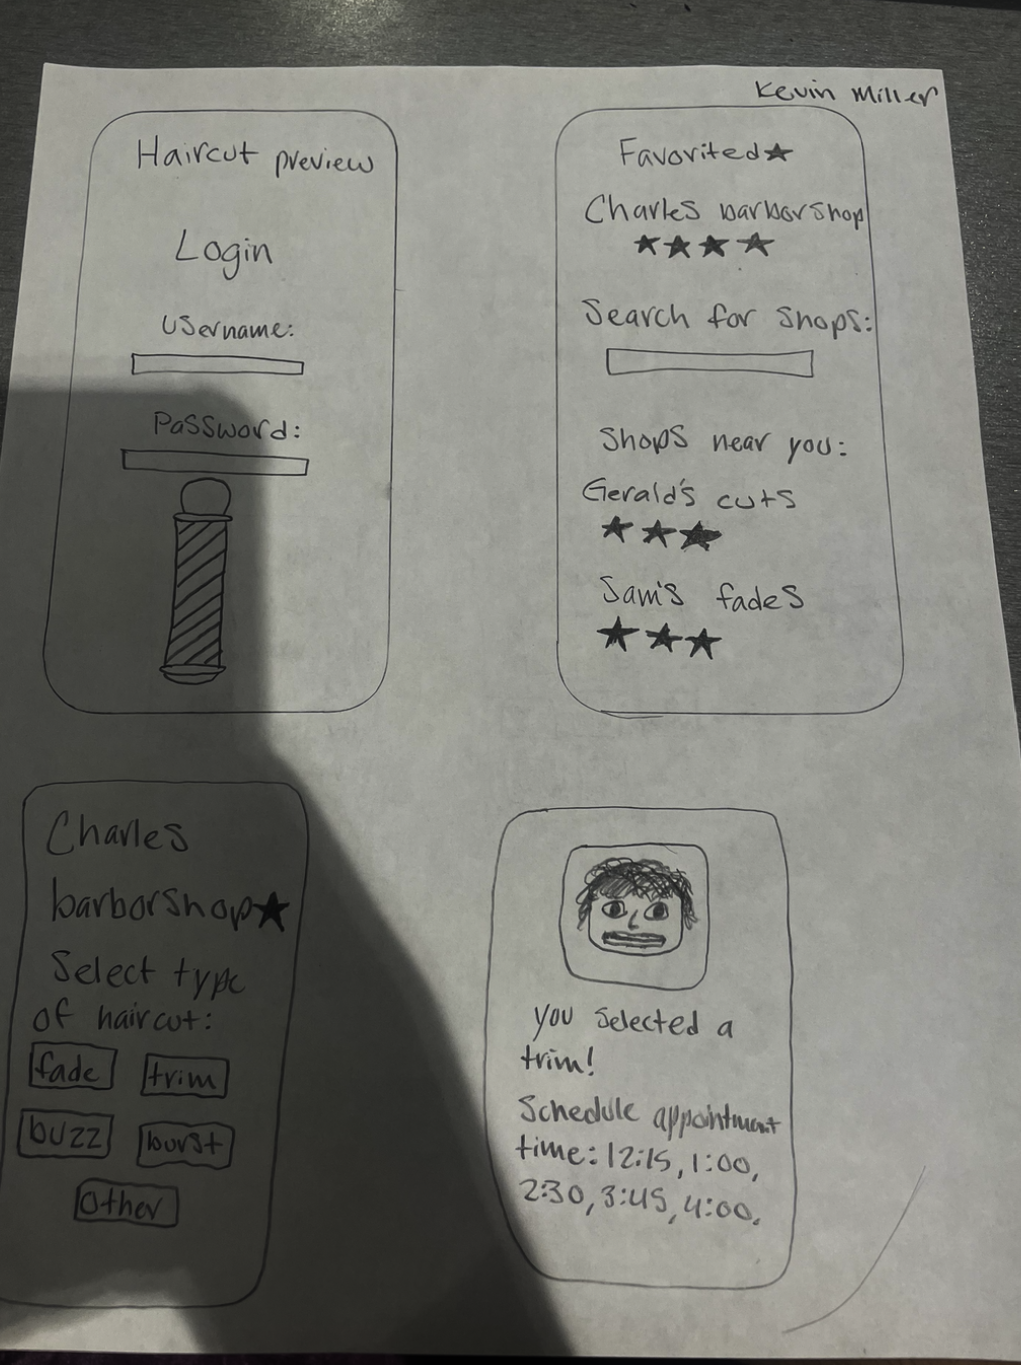 Kevin Miller
Haircut preview
Login
Username:
Password:
Favorited★
Charles barborshop
★★★★
Search for shops:
Shops near you:
Gerald's cuts
★★★
Sam's fades
★★★
Charles
barborshop★
Select type
of haircut:
fade trim
buzz burst
Other
You selected a
trim!
Schedule appointment
time: 12:15, 1:00,
2:30, 3:45, 4:00.